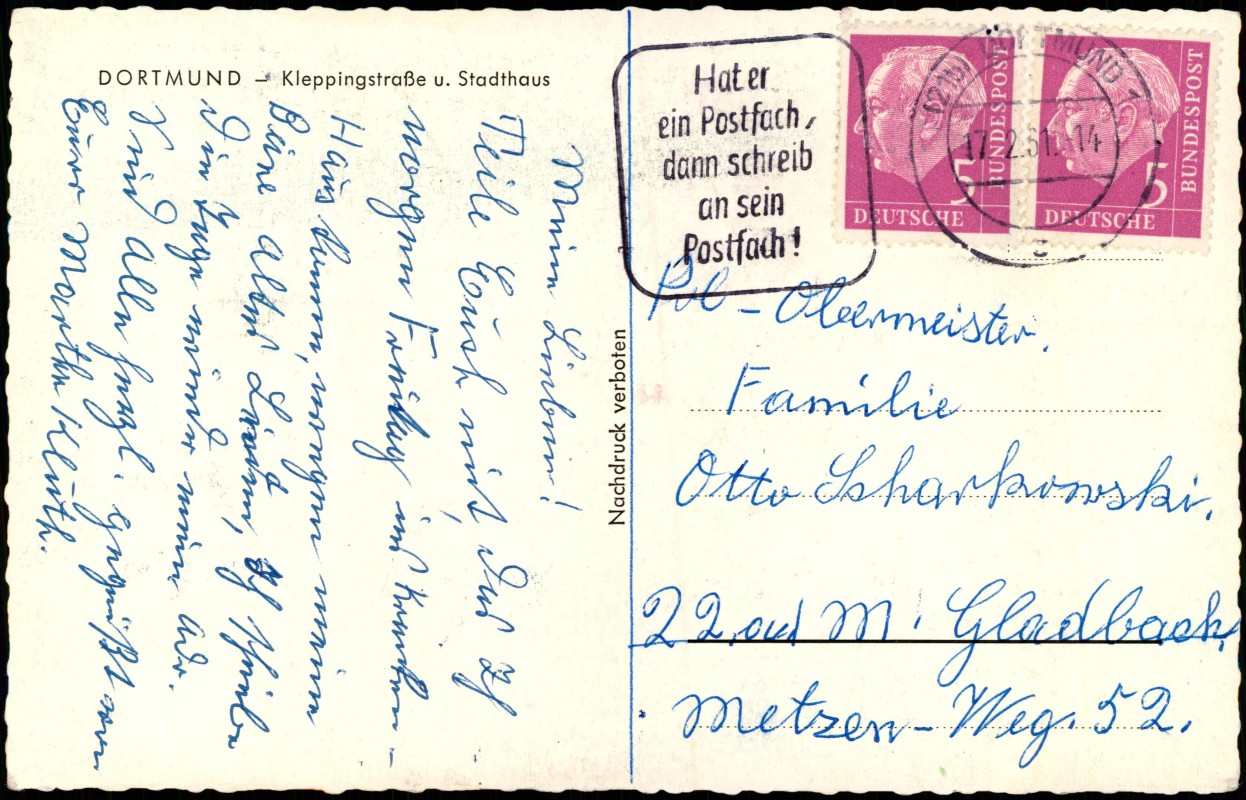 DORTMUND – Kleppingstraße u. Stadthaus
Meine Lieben!
Teile Euch mit, das ich
morgen Freitag ins Kranken-
Haus komme, wegen meine
Bäne alte Leiden, ich schreibe
die Tage wieder meine Adr.
Seid alle herzl. gegrüßt von
Eurer Martha Kluth.
Nachdruck verboten
Hat er
ein Postfach,
dann schreib
an sein
Postfach!
(21b) DORTMUND 1
17.2.61 14
c
5
DEUTSCHE
BUNDESPOST
5
DEUTSCHE
BUNDESPOST
Pol – Obermeister.
Familie
Otto Scharkowski.
22 ad M. Gladbach,
Metzen-Weg. 52.